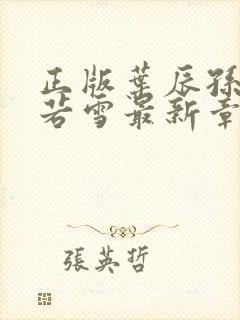 正版葉辰孫
若雪最新章
張英哲